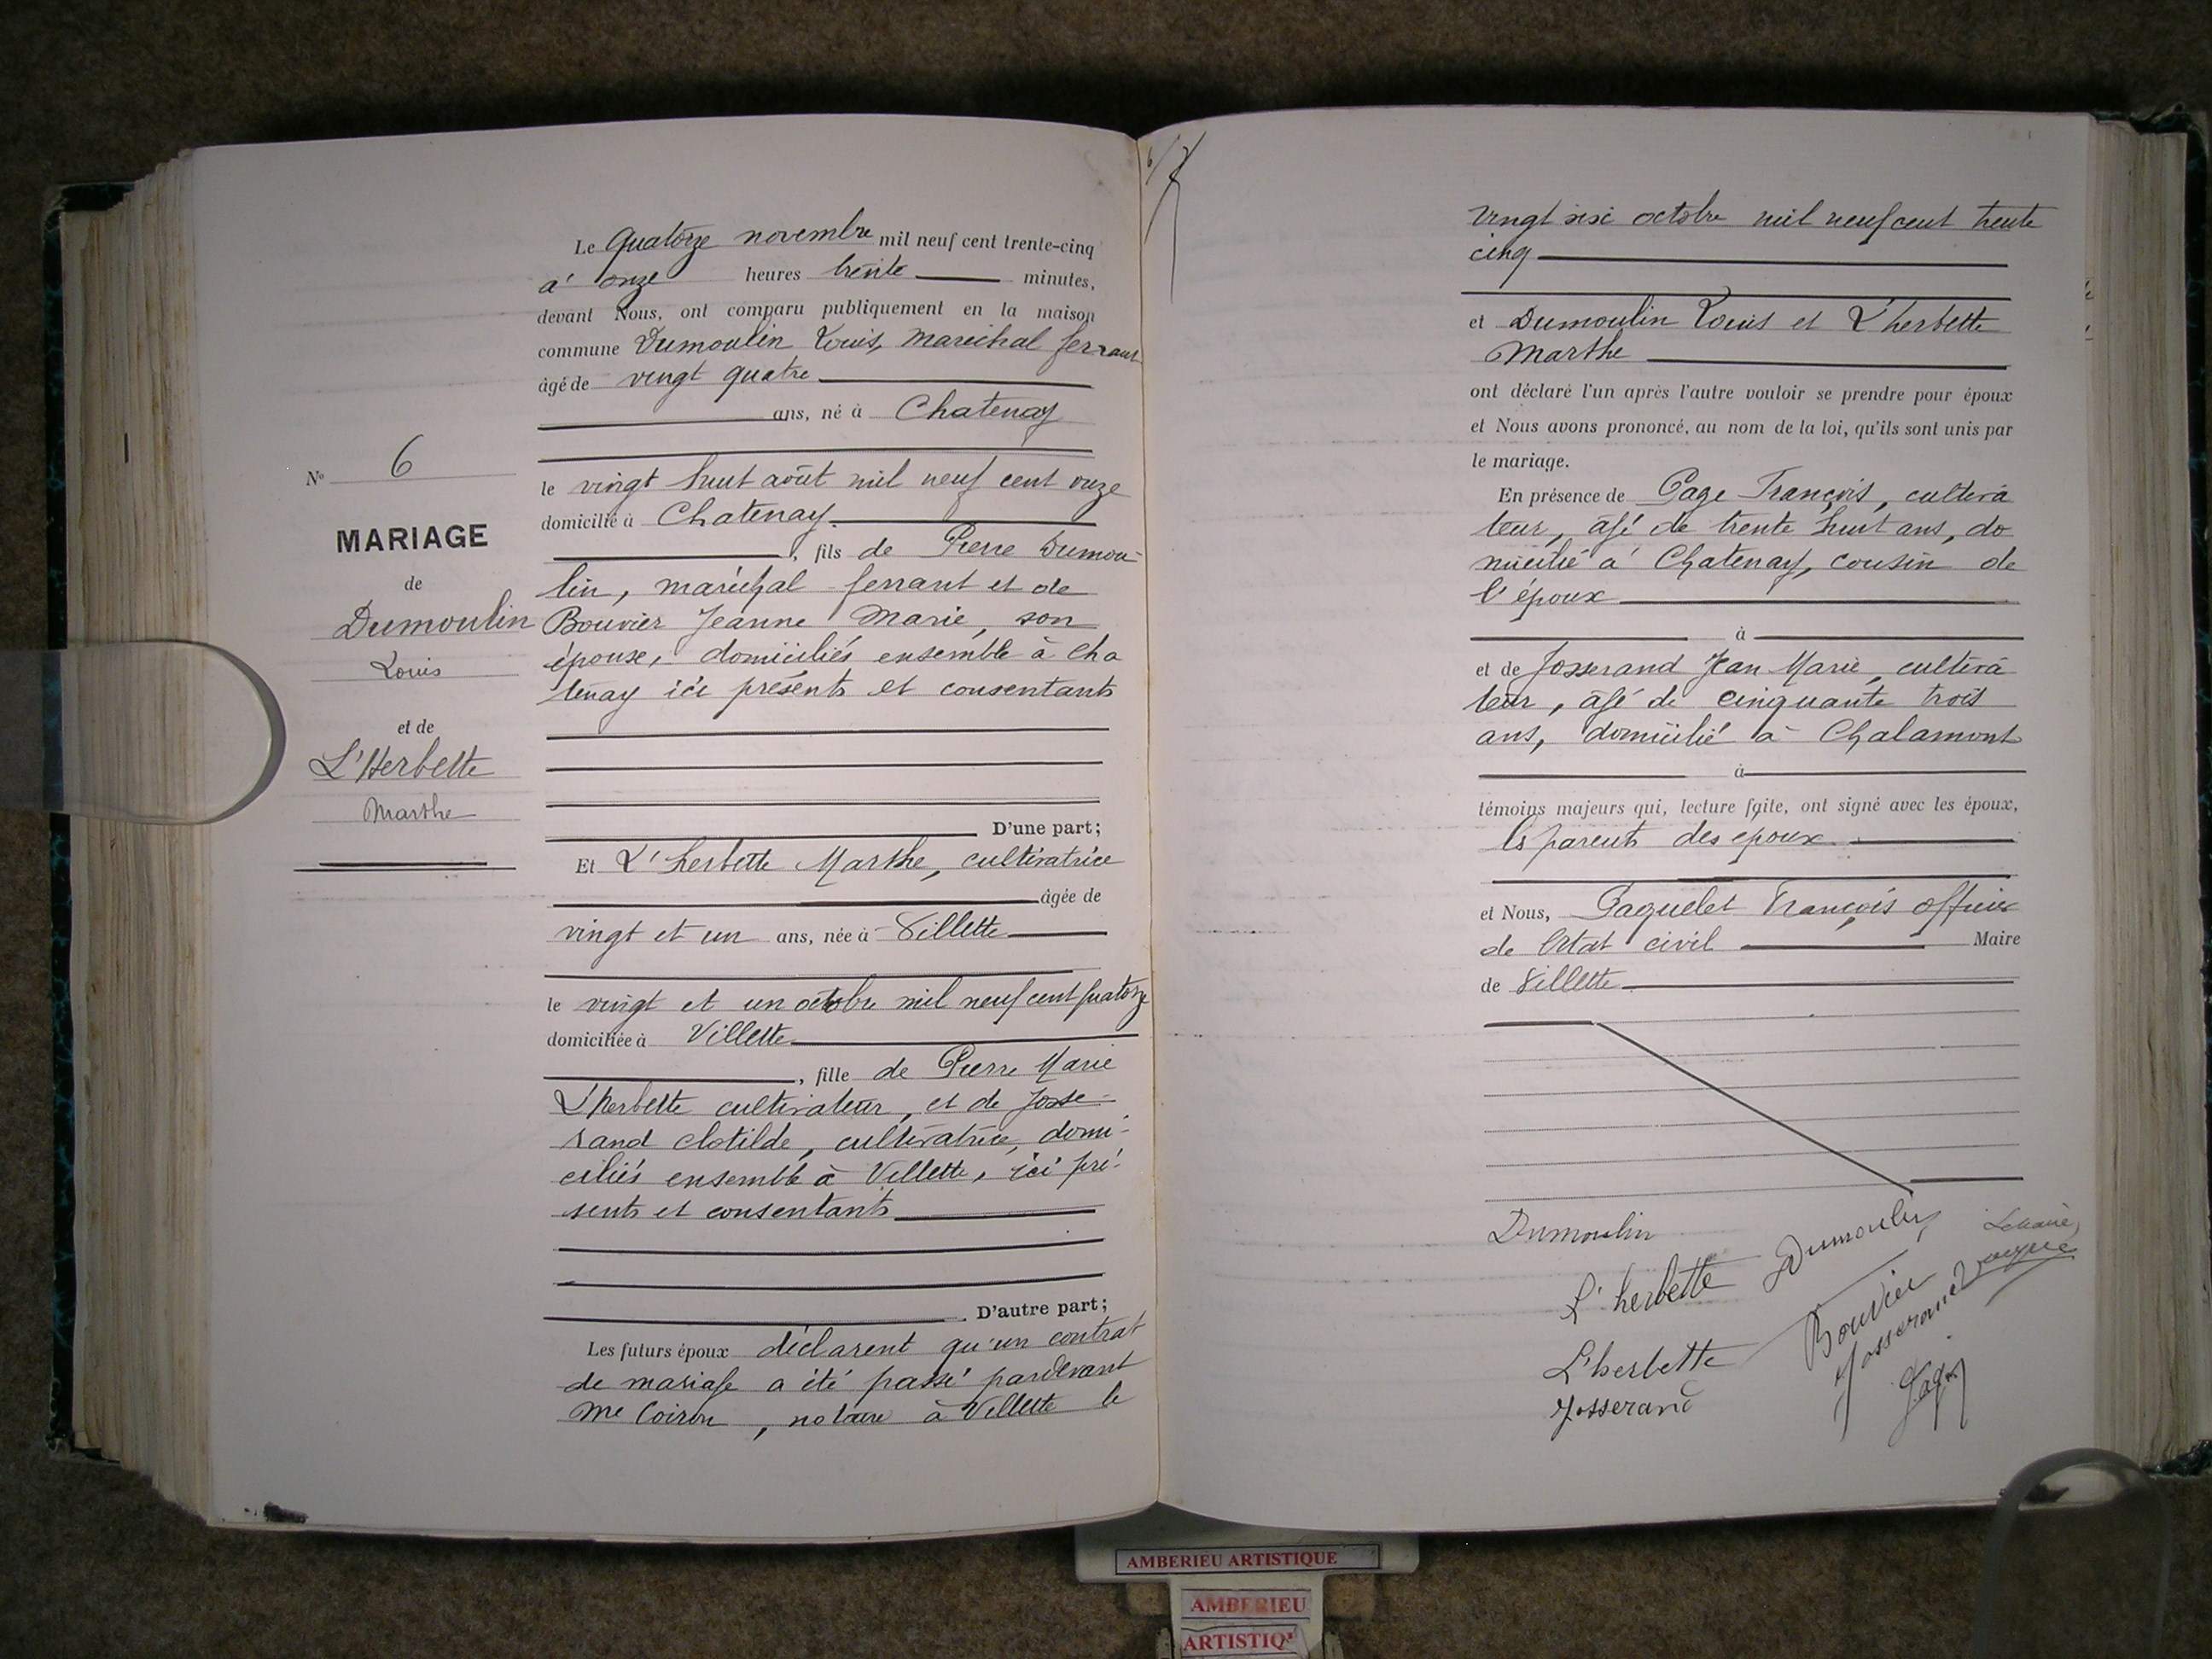 Le Quatorze novembre mil neuf cent trente-cinq
à onze heures trente minutes,
devant Nous, ont comparu publiquement en la maison
commune Dumoulin Louis, maréchal ferrant
âgé de vingt quatre
ans, né à Chatenay
le vingt huit août mil neuf cent onze
domicilié à Chatenay
, fils de Pierre Dumou-
lin, maréchal ferrant et de
Bouvier Jeanne Marie, son
épouse, domiciliés ensemble à Cha
tenay ici présents et consentants
D'une part;
Et L'herbette Marthe, cultivatrice
âgée de
vingt et un ans, née à Villette
le vingt et un octobre mil neuf cent quatorze
domiciliée à Villette
, fille de Pierre Marie
L'herbette cultivateur, et de Josse-
rand Clotilde, cultivatrice, domi-
ciliés ensemble à Villette, ici pré-
sents et consentants
D'autre part;
Les futurs époux déclarent qu'un contrat
de mariage a été passé pardevant
Me Coiron, notaire à Villette le
No 6
MARIAGE
de
Dumoulin
Louis
et de
L'Herbette
Marthe
vingt six octobre mil neuf cent trente
cinq
et Dumoulin Louis et L'herbette
Marthe
ont déclaré l'un après l'autre vouloir se prendre pour époux
et Nous avons prononcé, au nom de la loi, qu'ils sont unis par
le mariage.
En présence de Page François, cultiva
teur, âgé de trente huit ans, do
micilié à Chatenay, cousin de
l'époux
à
et de Josserand Jean Marie, cultiva
teur, âgé de cinquante trois
ans, domicilié à Chalamont
à
témoins majeurs qui, lecture faite, ont signé avec les époux,
les parents des epoux
et Nous, Paquelet François officier
de l'état civil Maire
de Villette
Dumoulin
L'herbette Dumoulin
Bouvier
L'herbette Josserand
Josserand Page
AMBERIEU ARTISTIQUE
AMBERIEU
ARTISTIQ